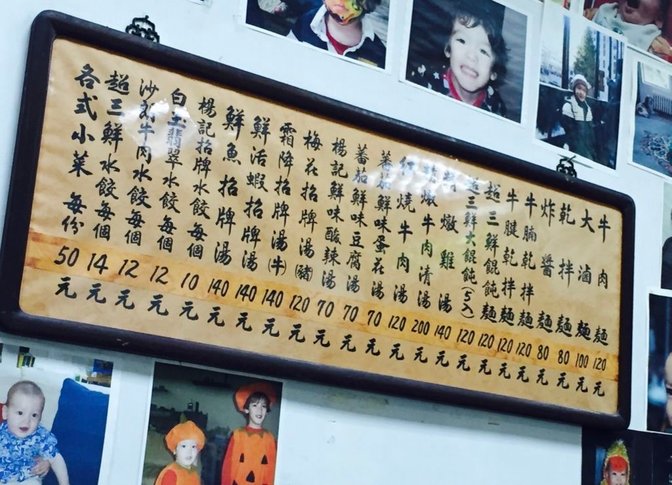 牛肉麵 120元
大滷麵 100元
乾拌麵 80元
炸醬麵 80元
牛腩乾拌麵 120元
牛腱乾拌麵 120元
超三鮮餛飩麵 120元
超三鮮大餛飩(5入) 120元
燉雞湯 140元
燉牛肉清湯 200元
紅燒牛肉湯 120元
鮮味蛋花湯 70元
蕃茄鮮味豆腐湯 70元
楊記鮮味酸辣湯 70元
梅花招牌湯(豬) 120元
霜降招牌湯(牛) 140元
鮮活蝦招牌湯 140元
鮮魚招牌湯 140元
楊記招牌水餃 每個 10元
白玉翡翠水餃 每個 12元
沙朗牛肉水餃 每個 12元
超三鮮水餃 每個 14元
各式小菜 每份 50元